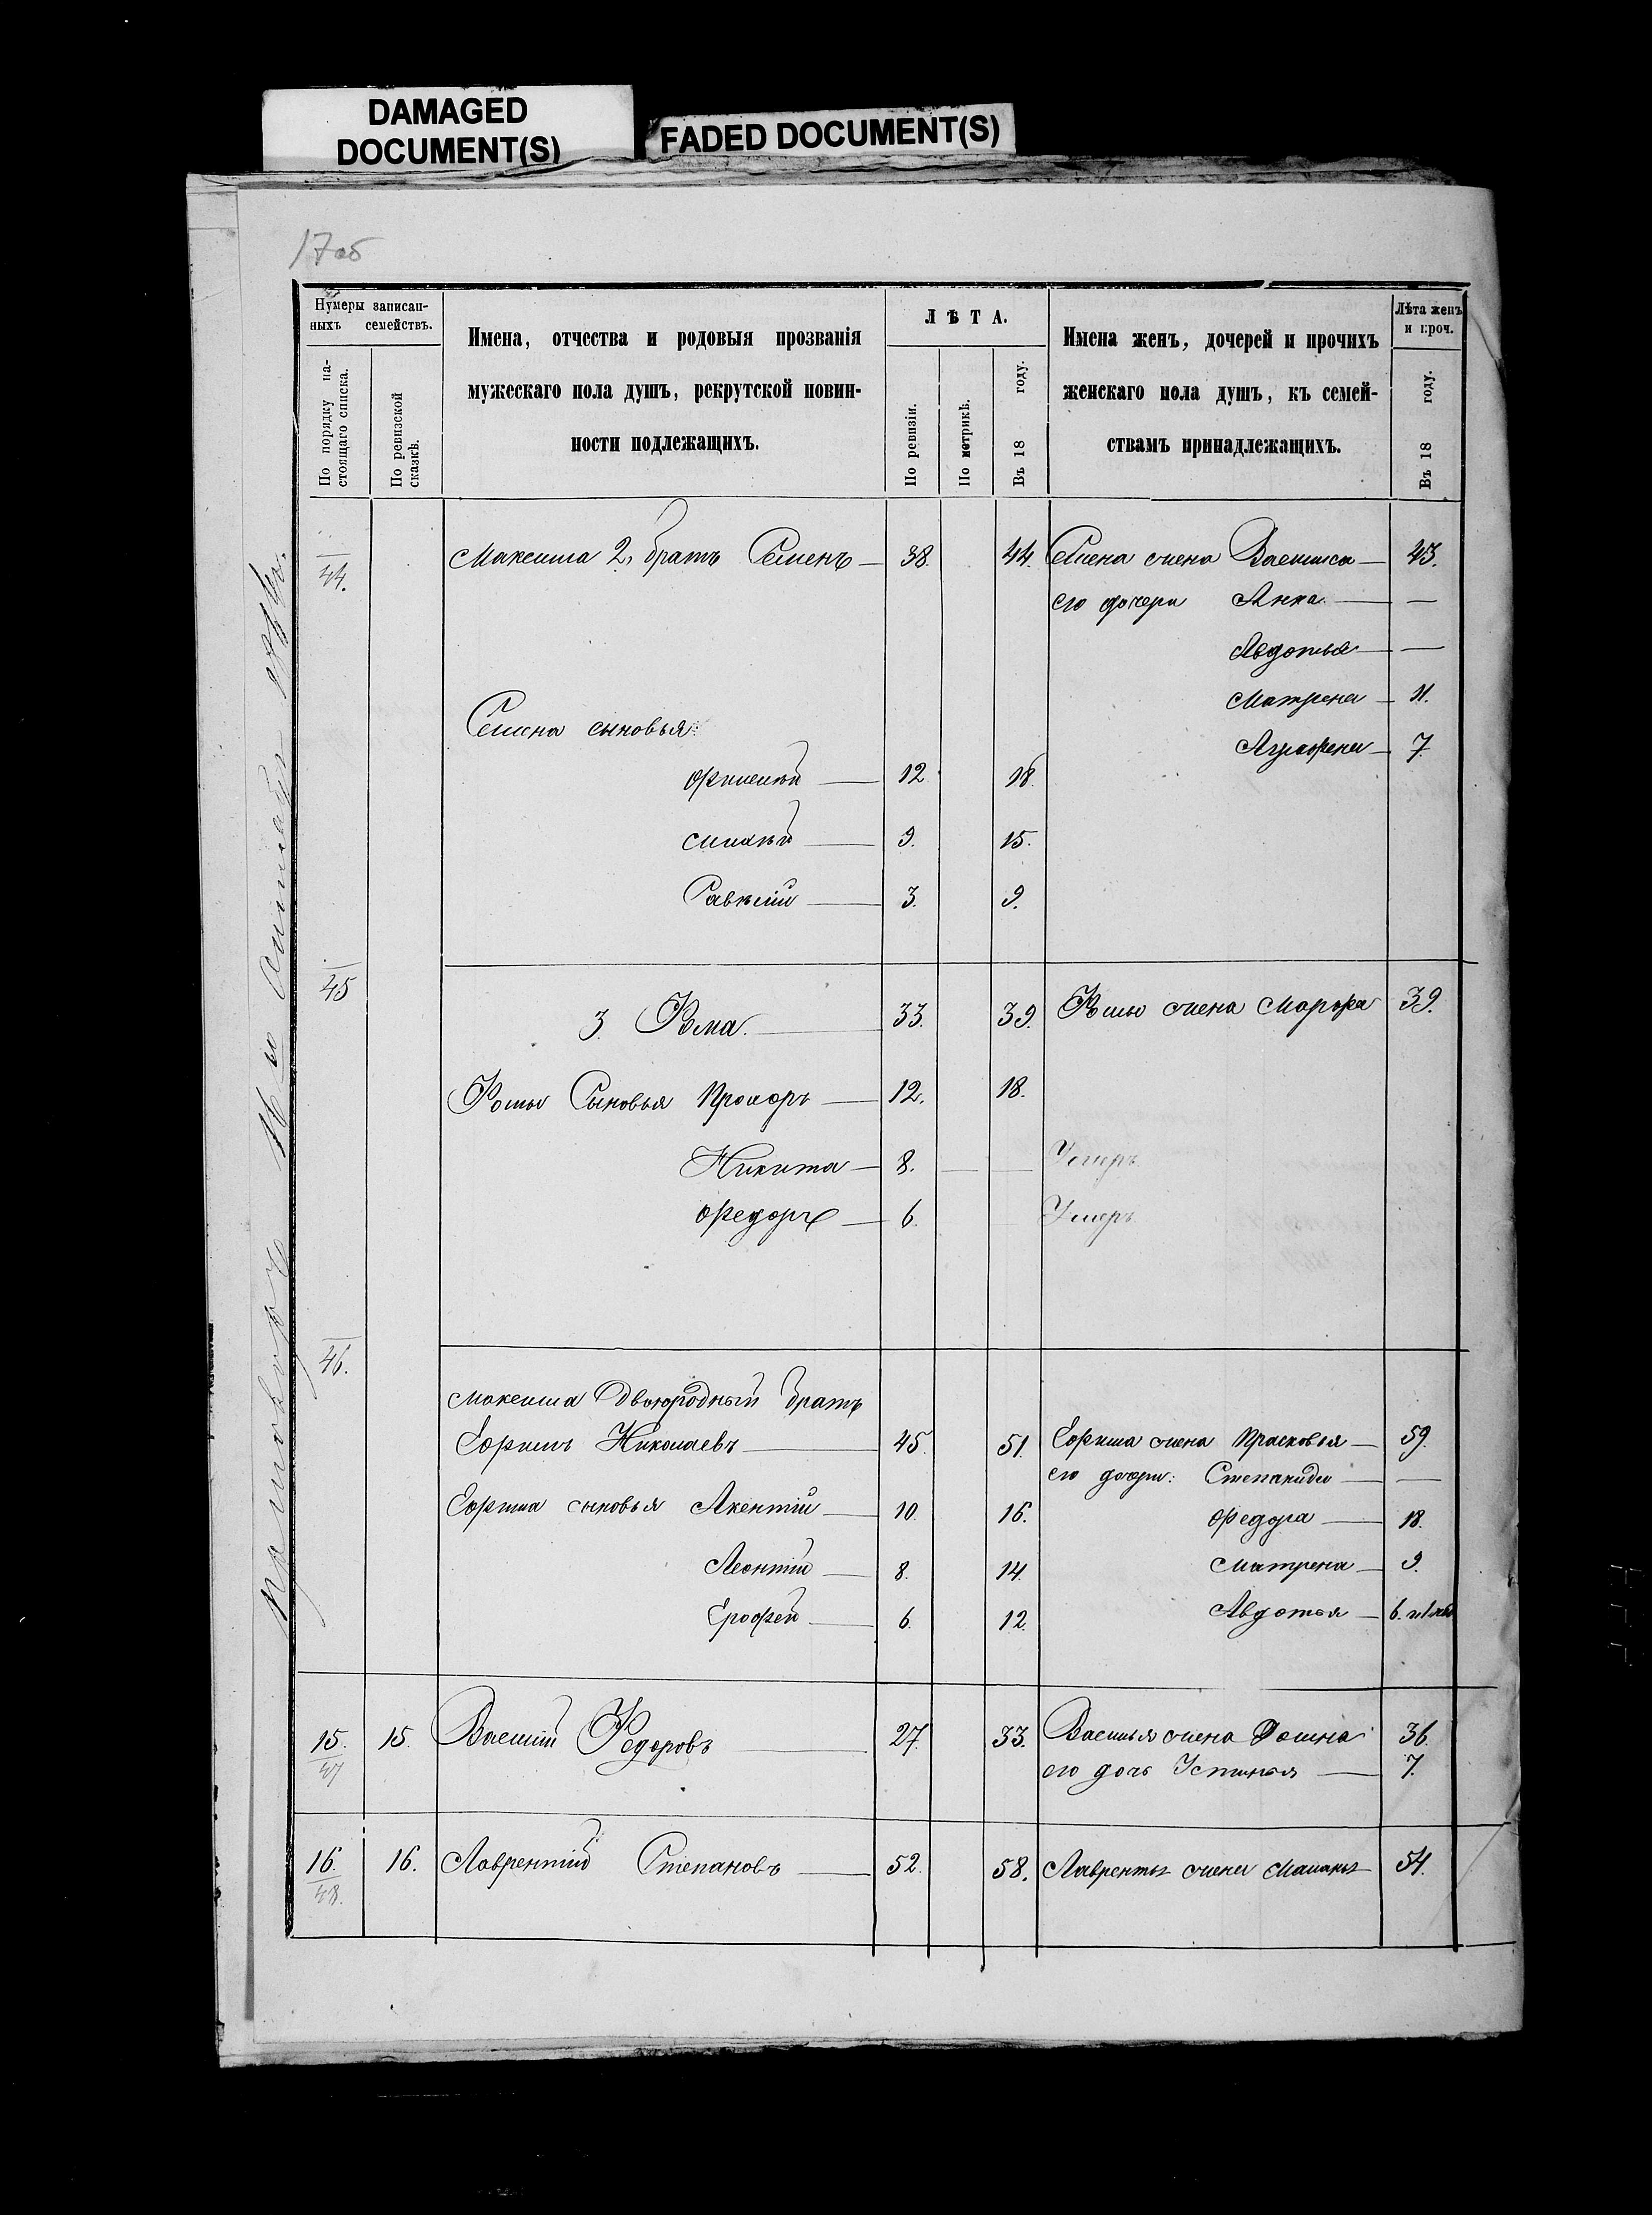 DAMAGED
DOCUMENT(S)
FADED DOCUMENT(S)
17об
Нумеры записан-
ныхъ семействъ.
По порядку на-
стоящаго списка.
По ревизской
сказкѣ.
Имена, отчества и родовыя прозванія
мужескаго пола душъ, рекрутской повин-
ности подлежащихъ.
ЛѢТА.
По ревизіи.
По метрикѣ.
Въ 18 году.
Имена женъ, дочерей и прочихъ
женскаго пола душъ, къ семей-
ствамъ принадлежащихъ.
Лѣта женъ
и проч.
Въ 18 году.
44. Максима 2й братъ Семенъ — 38. 44. Семена жена Василиса — 43.
его дочери Анна — —
Авдотья — —
Матрена — 11.
Семена сыновья:
Аграфена — 7.
12 18.
Михѣй — 9. 15.
Савѣлій — 3. 9.
45
3. Фома — 33. 39. Фомы жена Марфа 39.
Фомы Сыновья Прохоръ — 12. 18.
Никита — 8. — — Умеръ
Федоръ — 6. — Умеръ
46.
Максима Двоюродный братъ
Ефимъ Николаевъ — 45. 51. Ефима жена Прасковья — 59.
его дочери: Степанида — —
Ефима сыновья Акентій — 10. 16.
Федора — 18.
Леонтій — 8. 14.
Матрена — 9.
Ерофей — 6. 12.
Авдотья — 6.
15. 15. Василій Федоровъ — 27. 33. Василья жена Домна 36.
47 его дочь Устинья — 7.
16. 16. Лаврентій Степановъ — 52. 58. Лаврентья жена 54.
48.